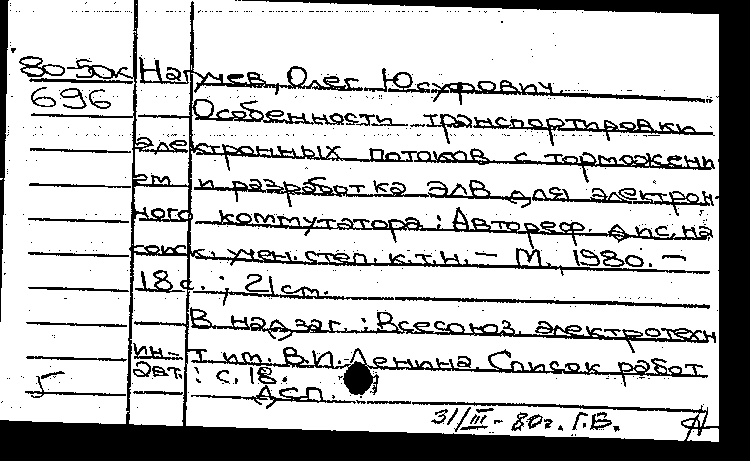 80-50к Нагучев, Олег Юсуфович.
696 Особенности транспортировки
электронных потоков с торможени
ем и разработка ЭЛВ для электрон-
ного коммутатора : Автореф. дис. на
соиск. учен. степ. к.т.н. — М., 1980. —
18 с. ; 21 см.
В надзаг. : Всесоюз. электротехн
ин-т им. В.И. Ленина. Список работ
авт. : с. 18.
5 ДСП.
31/III - 80г. Г.В.